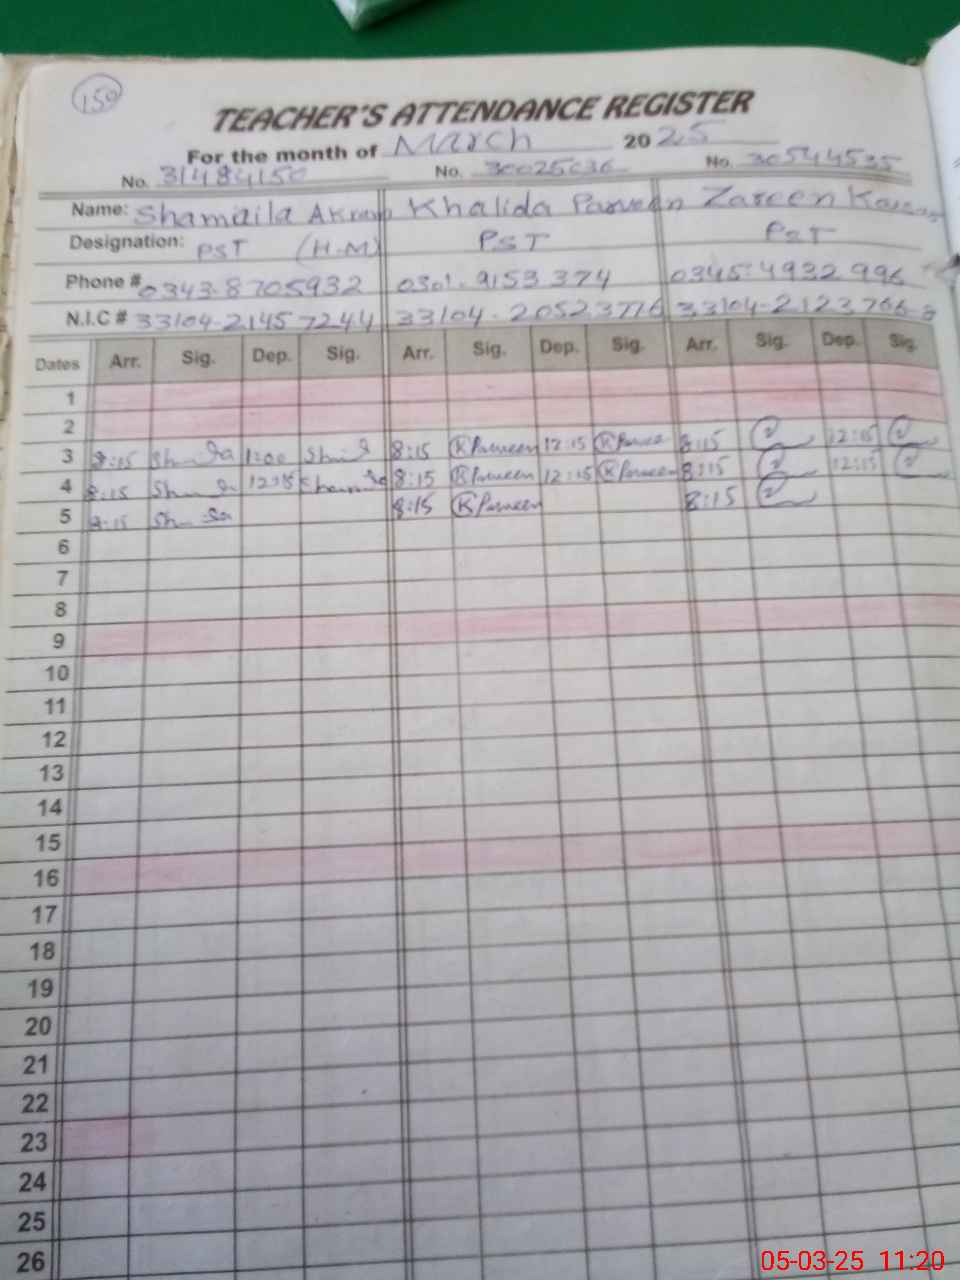 150
TEACHER'S ATTENDANCE REGISTER
For the month of March 2025
No. 31484150 No. 30025036 No. 30544535
Name: Shamaila Akram Khalida Parveen Zareen
Designation: PST (H.M) PST PST
Phone # 0343-8705932 0301-9153374 0345-4932996
N.I.C # 33104-21457244 33104-20523776 33104-2123766-8
Dates Arr. Sig. Dep. Sig. Arr. Sig. Dep. Sig. Arr. Sig. Dep. Sig.
1
2
3 8:15 1:00 8:15 K Parveen 12:15 K Parveen 8:15 12:15
4 8:15 12:15 8:15 K Parveen 12:15 K Parveen 8:15 12:15
5 8:15 8:15 K Parveen 8:15
6
7
8
9
10
11
12
13
14
15
16
17
18
19
20
21
22
23
24
25
26
05-03-25 11:20